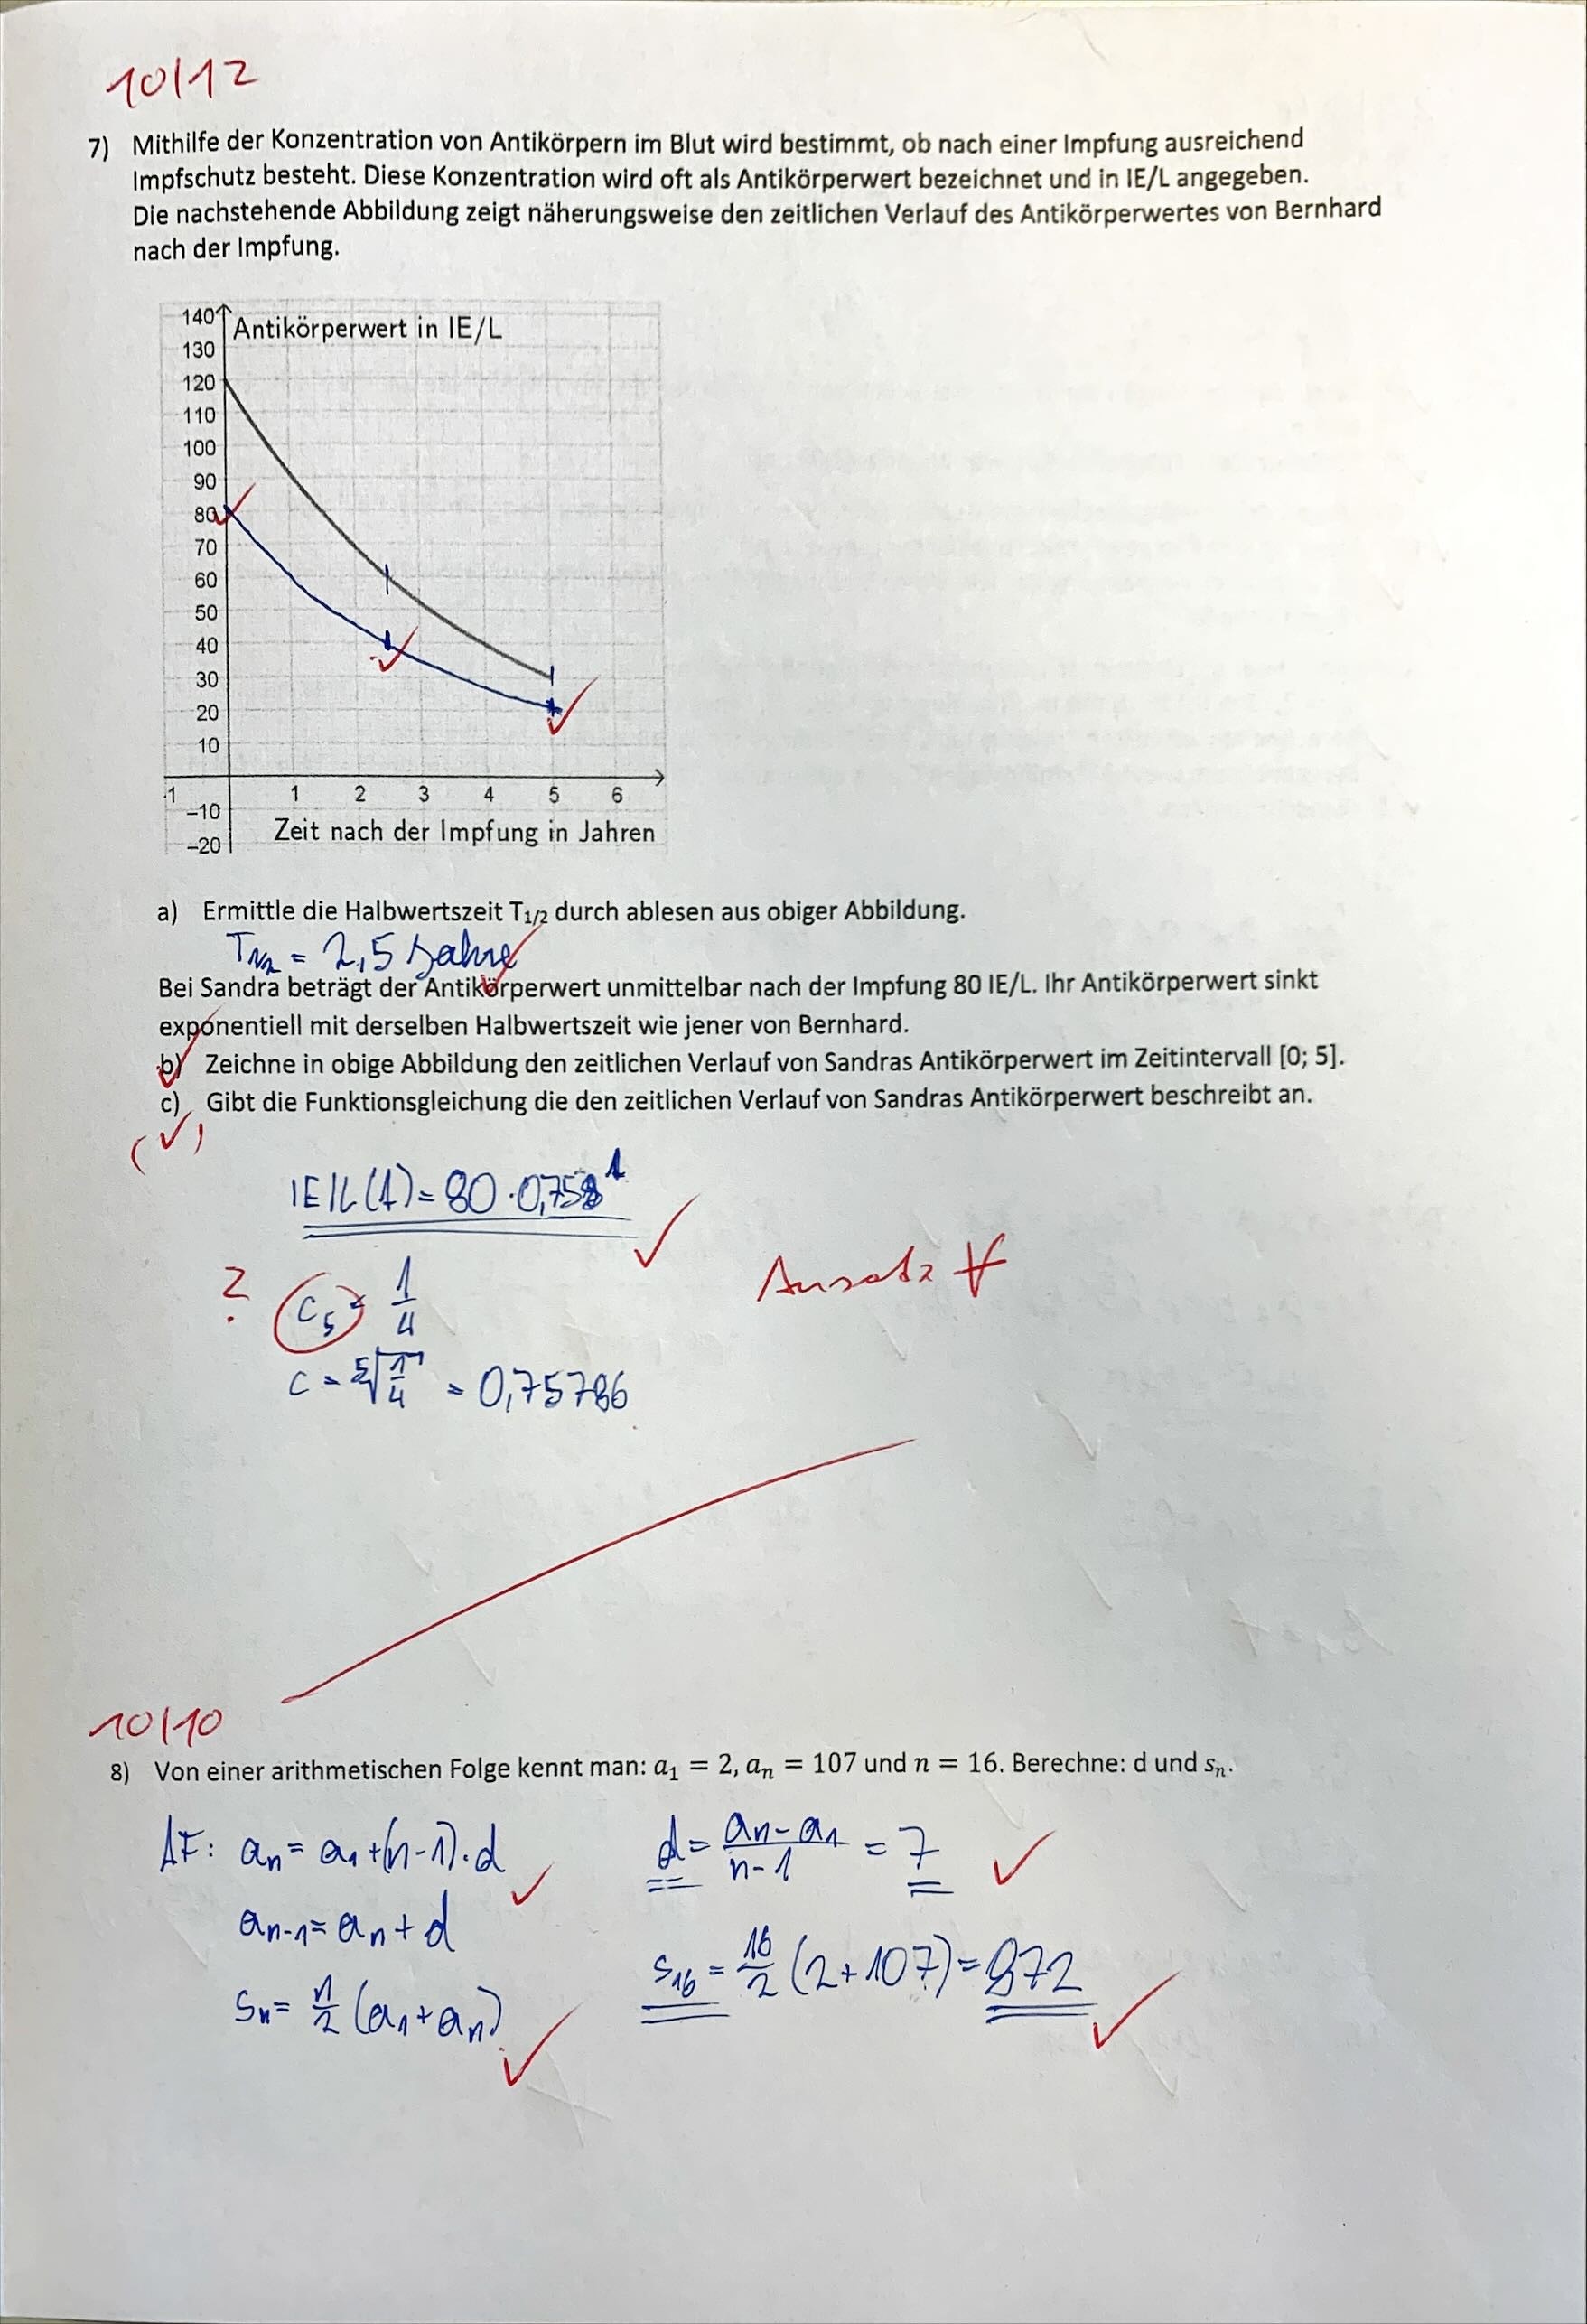 10/12
7) Mithilfe der Konzentration von Antikörpern im Blut wird bestimmt, ob nach einer Impfung ausreichend
Impfschutz besteht. Diese Konzentration wird oft als Antikörperwert bezeichnet und in IE/L angegeben.
Die nachstehende Abbildung zeigt näherungsweise den zeitlichen Verlauf des Antikörperwertes von Bernhard
nach der Impfung.
140 Antikörperwert in IE/L
130
120
110
100
90
80
70
60
50
40
30
20
10
-1 1 2 3 4 5 6
–10
Zeit nach der Impfung in Jahren
–20
a) Ermittle die Halbwertszeit T1/2 durch ablesen aus obiger Abbildung.
T1/2 = 2,5 Jahre
Bei Sandra beträgt der Antikörperwert unmittelbar nach der Impfung 80 IE/L. Ihr Antikörperwert sinkt
exponentiell mit derselben Halbwertszeit wie jener von Bernhard.
b) Zeichne in obige Abbildung den zeitlichen Verlauf von Sandras Antikörperwert im Zeitintervall [0; 5].
c) Gibt die Funktionsgleichung die den zeitlichen Verlauf von Sandras Antikörperwert beschreibt an.
(✓)
IE/L(t) = 80 · 0,758^t
? c5 = 1/4 Ansatz
c = ⁵√1/4 = 0,75786
10/10
8) Von einer arithmetischen Folge kennt man: a₁ = 2, aₙ = 107 und n = 16. Berechne: d und sₙ.
AF: an = a1 + (n-1)·d
d = (an - a1)/(n-1) = 7
an-1 = an + d
s16 = 16/2 (2+107) = 872
sn = n/2 (a1 + an)